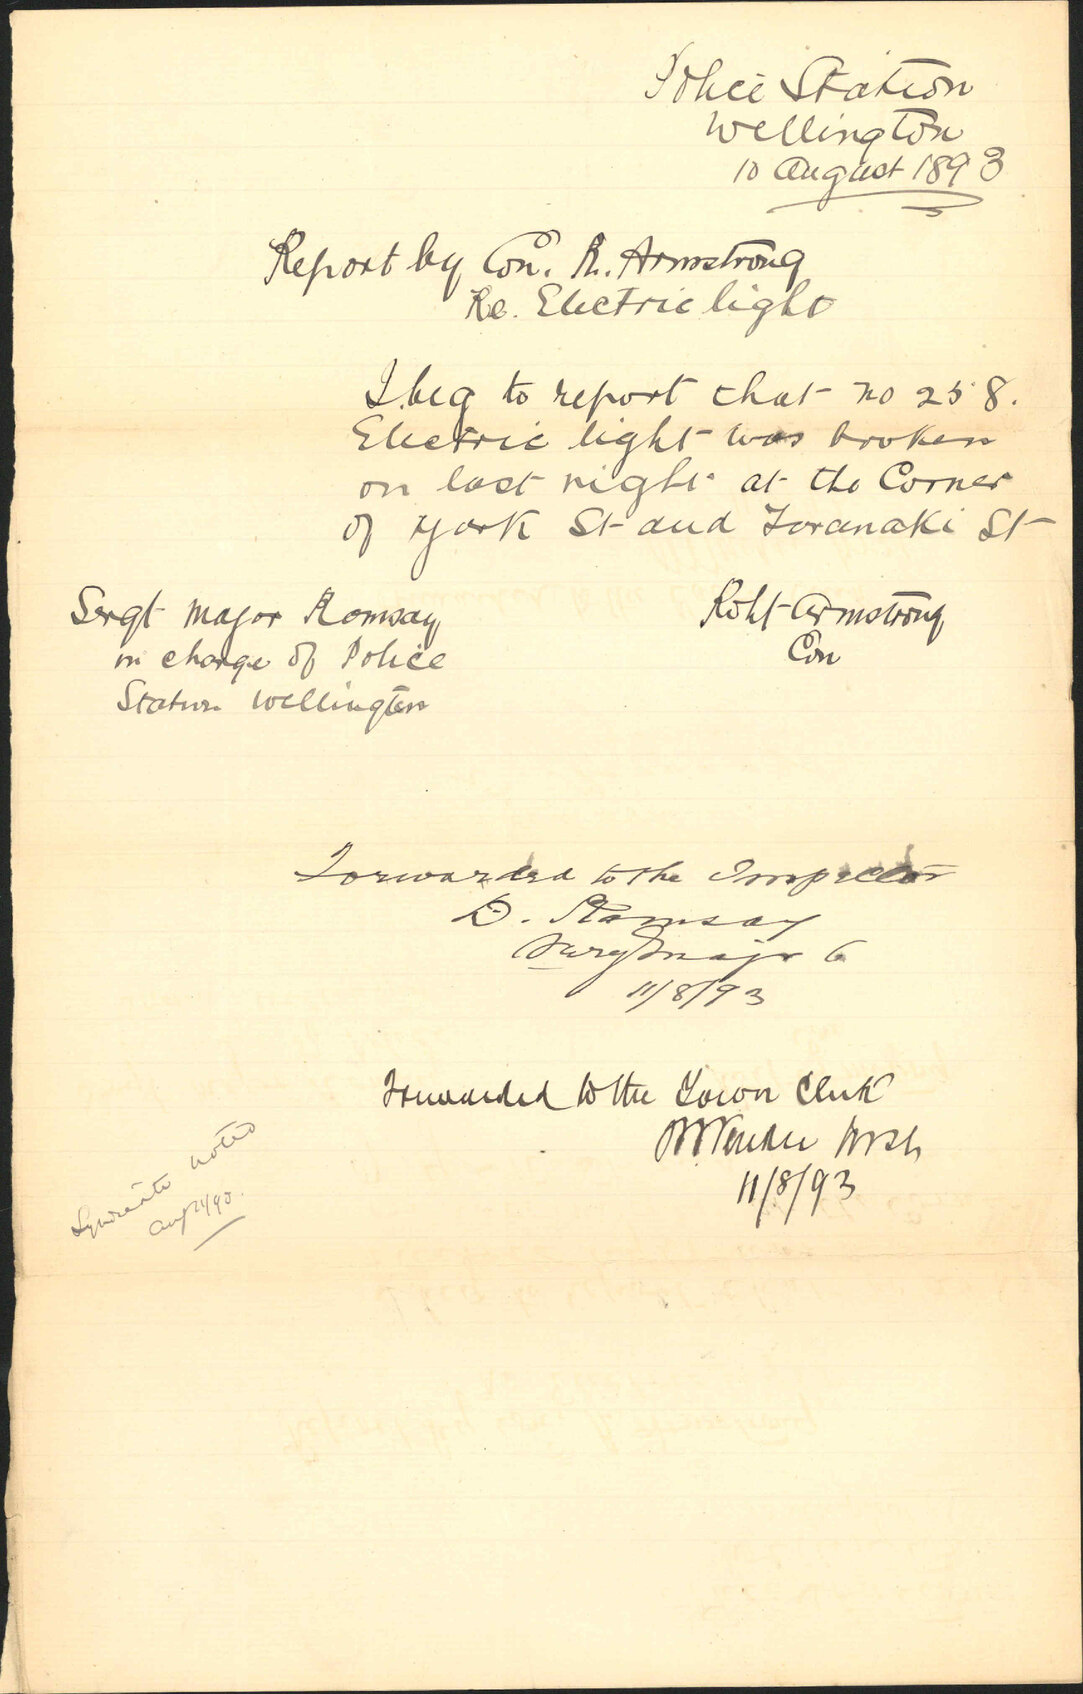 Police Station
Wellington
10 August 1893
Report by Con. R. Armstrong
Re. Electric light
I beg to report that no 258.
Electric light was broken
on last night at the Corner
of York St and Taranaki St
Robt Armstrong
Con
Sergt Major Ramsay
in charge of Police
Station Wellington
Forwarded to the Inspector
D. Ramsay
Sergt Major
11/8/93
Forwarded to the Town Clerk
11/8/93
notes